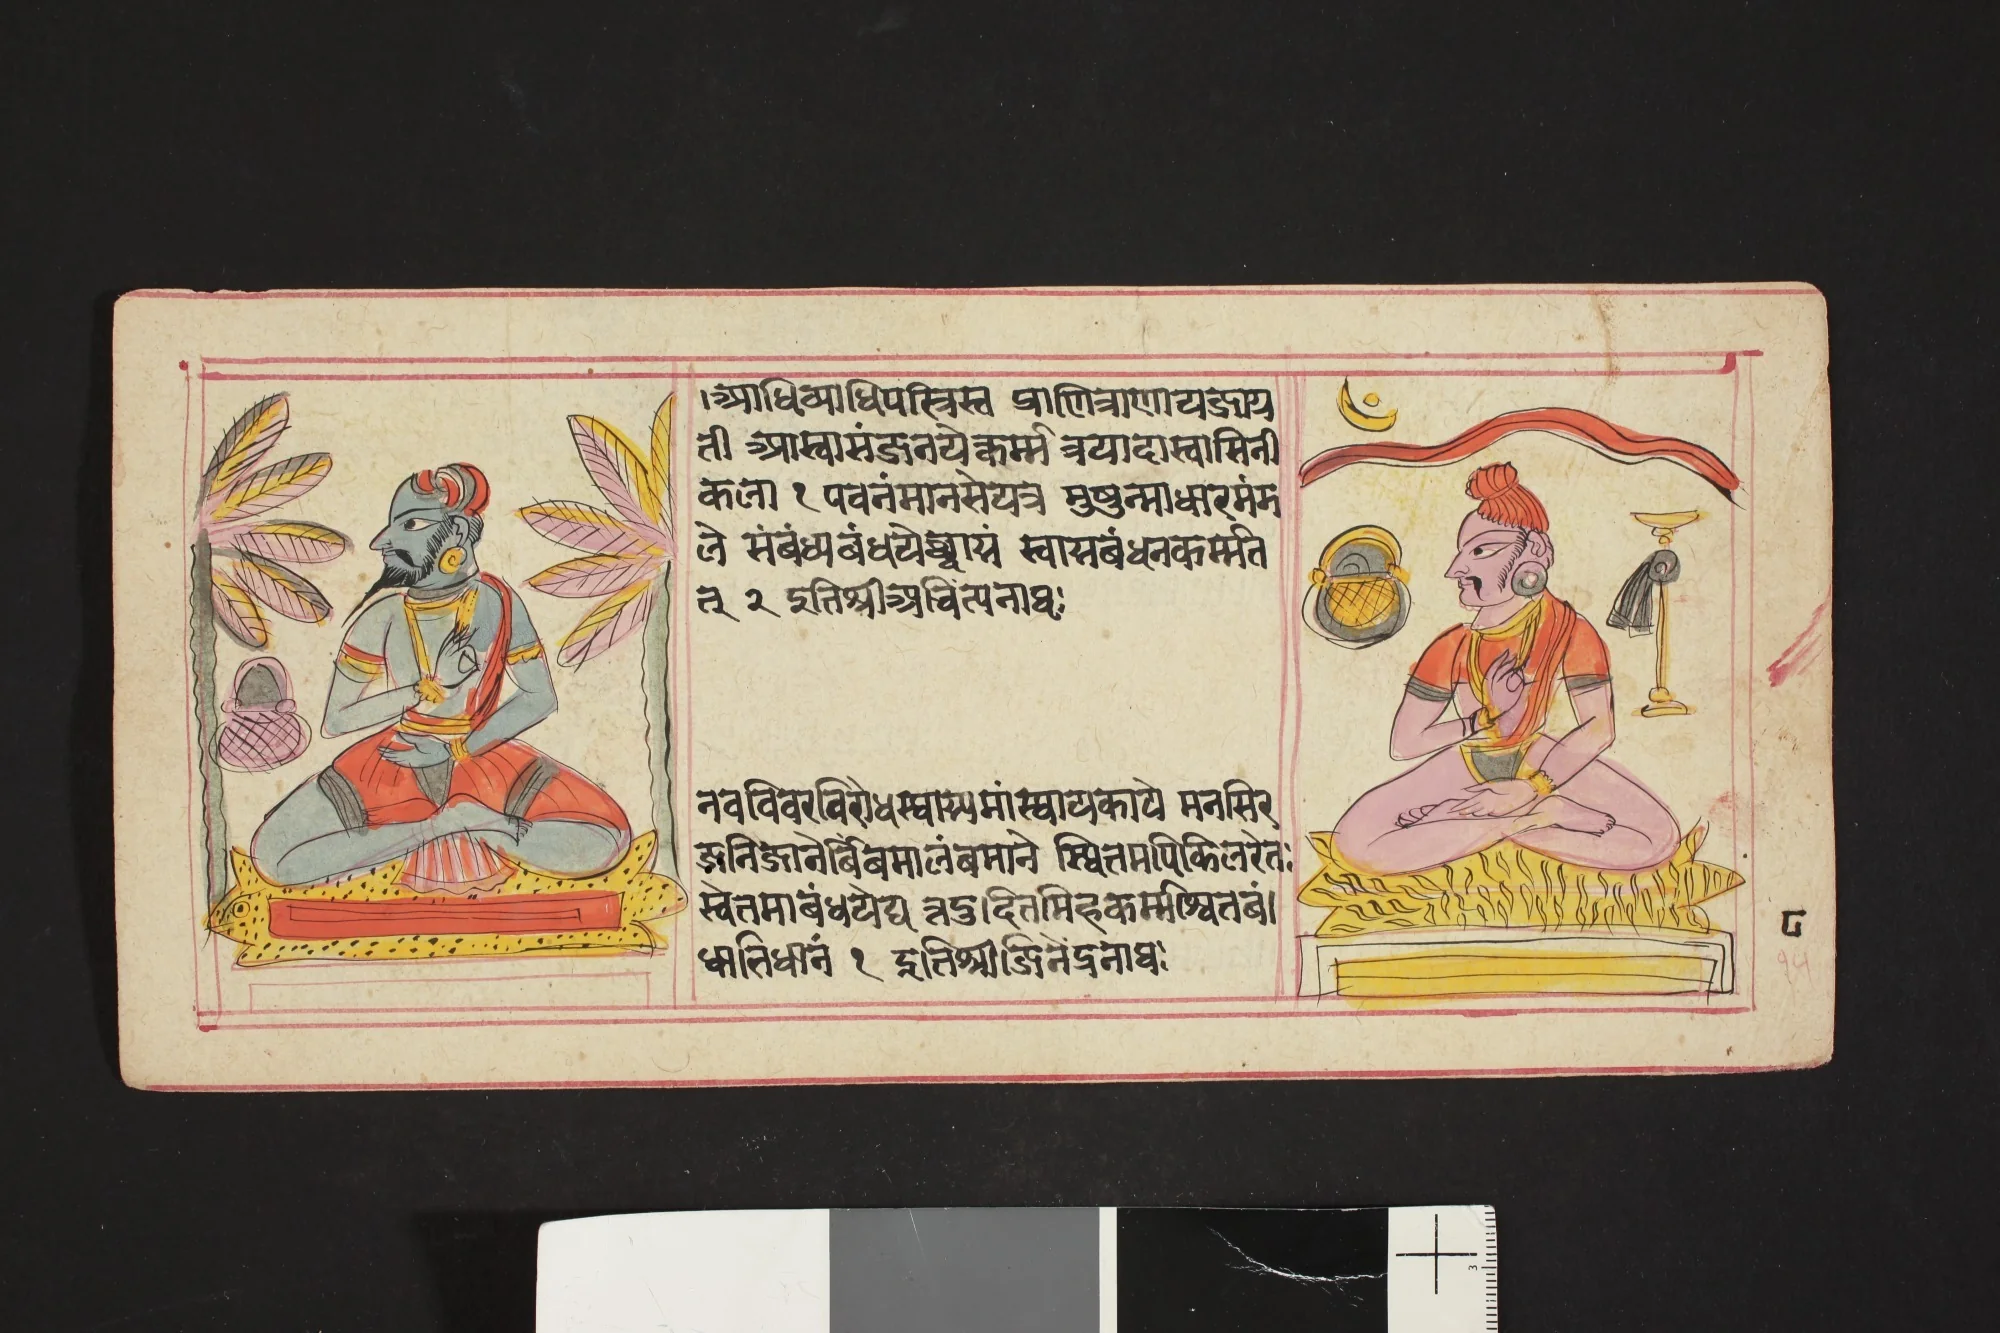 ।आधिव्याधिपस्त्रिस्त्व प्राणित्राणायजाय
ती आस्वासंजनयेकर्म्म त्रयादास्वासिनी
कला १ पवनंमानसेयत्र मुषुन्माधारमंम
ले संबंध्यबंधयेछ्वासं स्वासबंधनकर्म्मत
त् २ इतिश्रीअचिंत्यनाथः
नवविवरविरोधस्वास्यमांस्थायकाये मनसिर
जनिजानेर्बिंबमालंबमाने स्थितमपिकिलरेतः
स्वेतमाबंधयेद्य त्रदुदितमिहकर्म्मश्वितबं।
धातिधानं १ इतिश्रीजिनेंद्रनाथः
८
१५